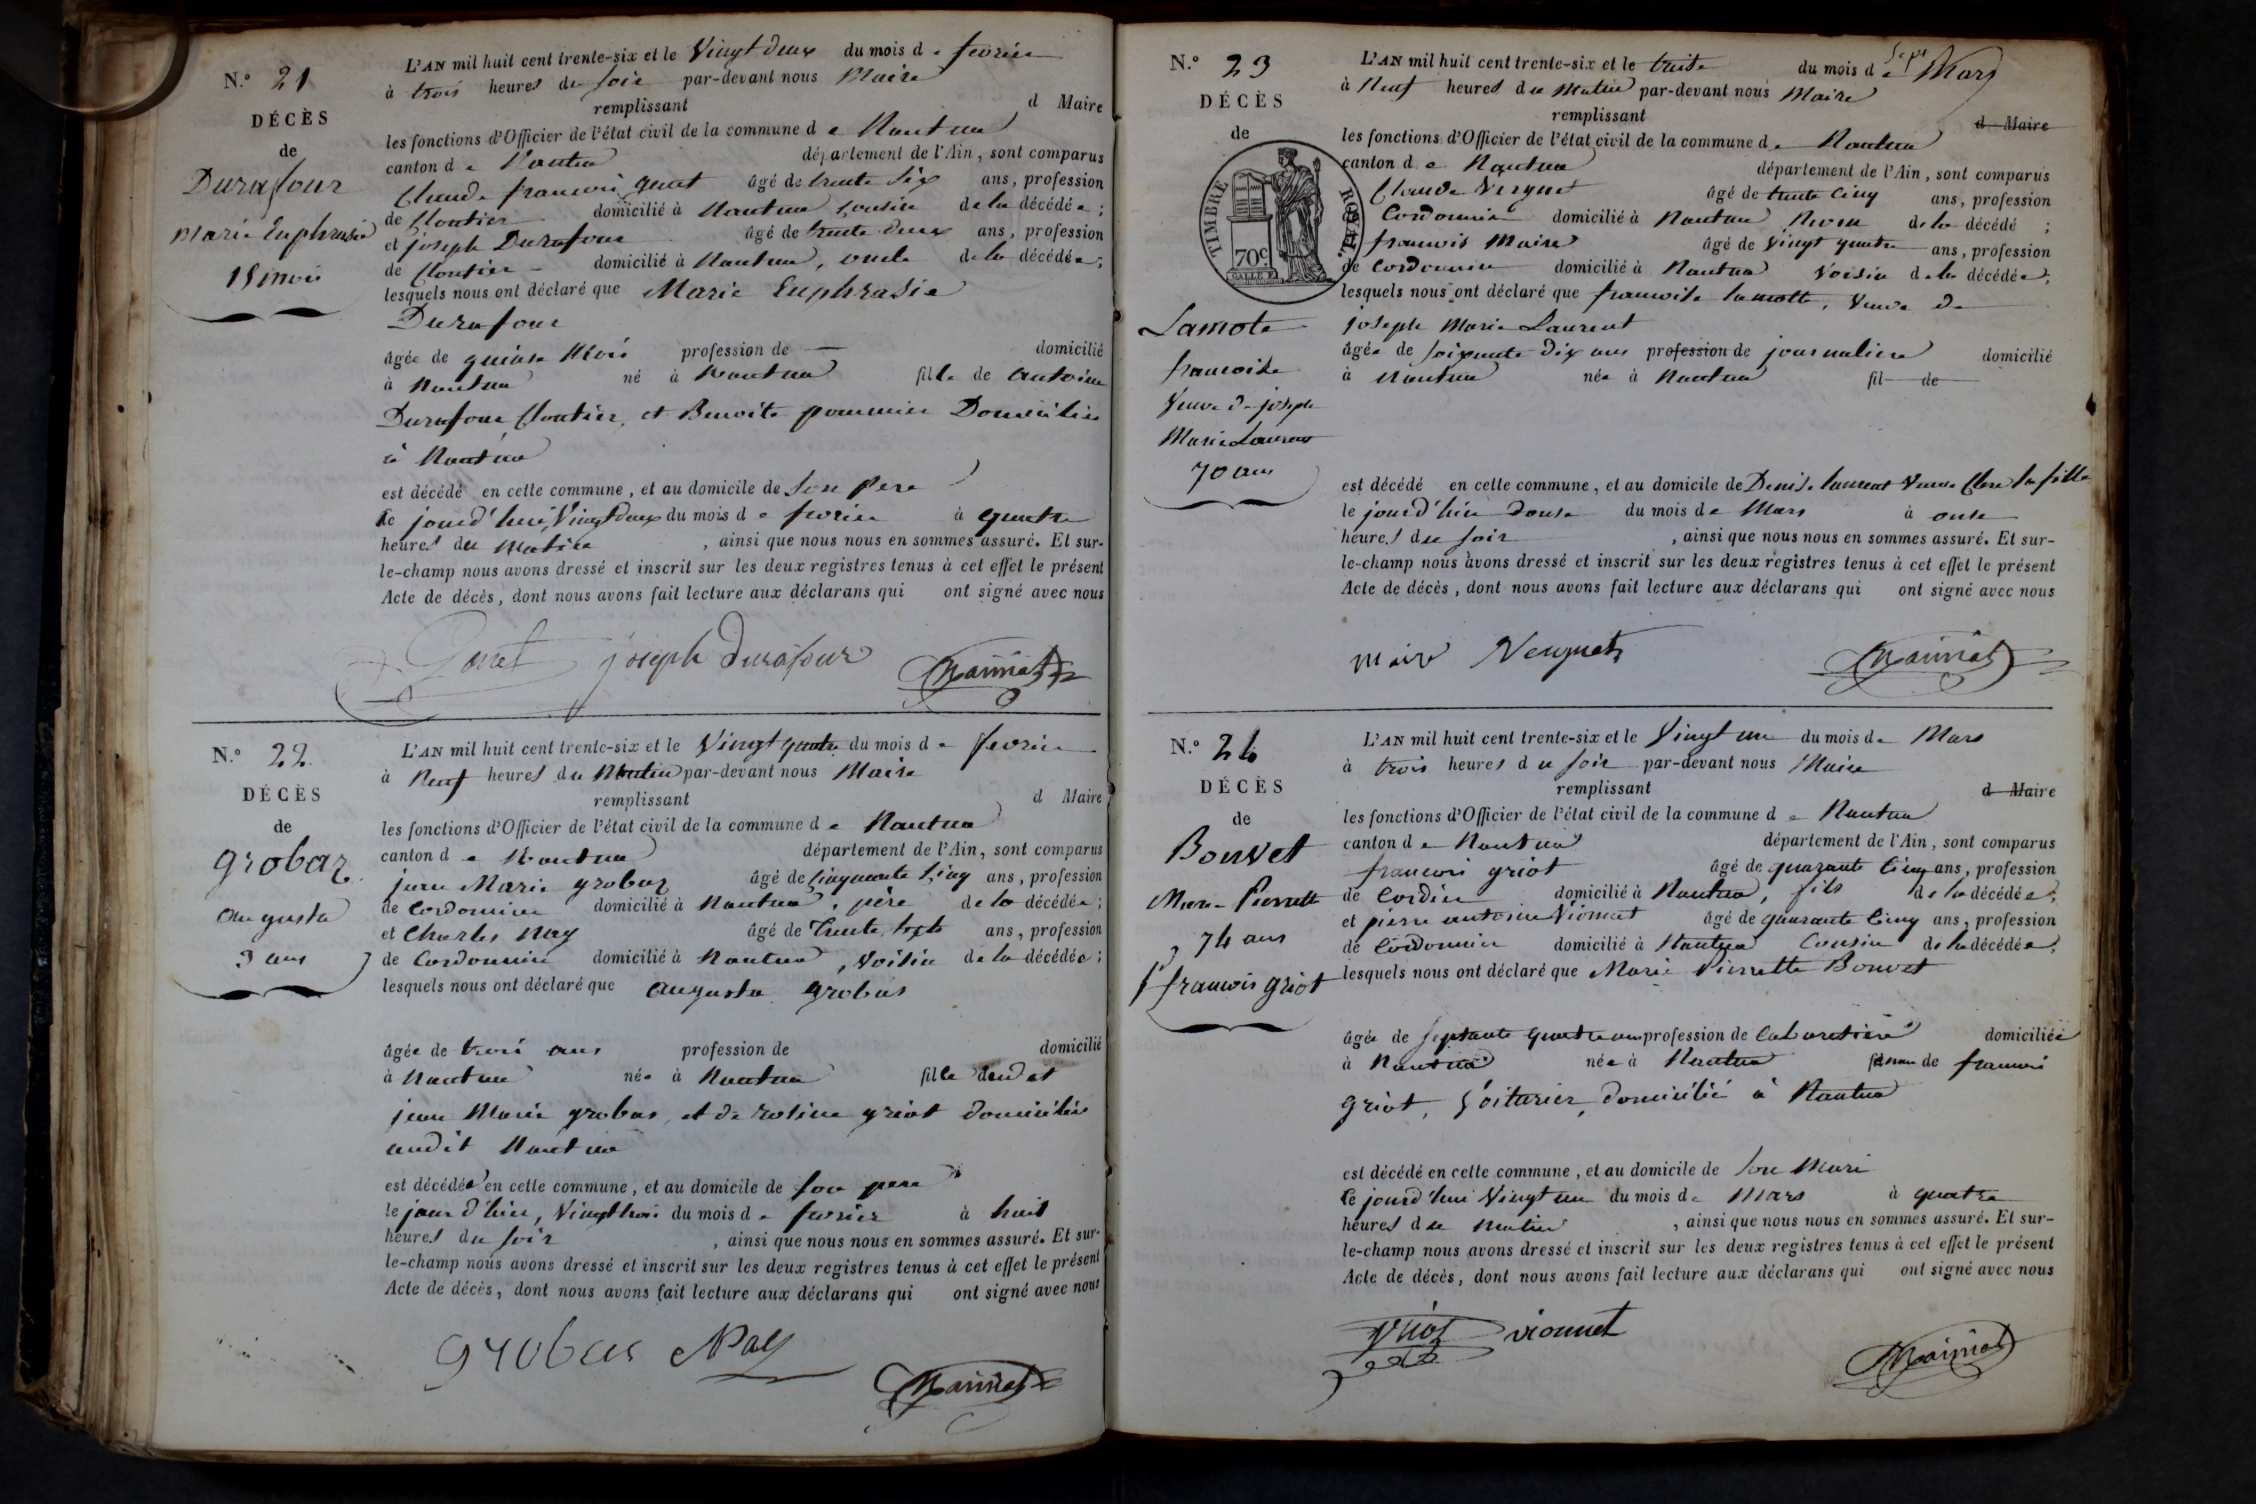 N.° 21
DÉCÈS
de
Durafour
Marie Euphrasie
15 mois
L'AN mil huit cent trente-six et le Vingt deux du mois de fevrier
à trois heures du soir par-devant nous Maire
remplissant d Maire
les fonctions d'Officier de l'état civil de la commune de Nantua
canton de Nantua département de l'Ain, sont comparus
Claude francois agé de trente six ans, profession
de Cloutier domicilié à Nantua cousin de la décédée ;
et joseph Durafour âgé de trente deux ans, profession
de Cloutier domicilié à Nantua, oncle de la décédée ;
lesquels nous ont déclaré que Marie Euphrasie
Durafour
âgée de quinze Mois profession de — domicilié
à Nantua né à Nantua fille de antoine
Durafour Cloutier, et Benoite pommier Domiciliés
à Nantua
est décédé en cette commune, et au domicile de son Pere
le jourd'hui Vingt deux du mois de fevrier à quatre
heures du Matin , ainsi que nous nous en sommes assuré. Et sur-
le-champ nous avons dressé et inscrit sur les deux registres tenus à cet effet le présent
Acte de décès, dont nous avons fait lecture aux déclarans qui ont signé avec nous
joseph Durafour
N.° 22
DÉCÈS
de
grobaz
augusta
3 ans
L'AN mil huit cent trente-six et le Vingt quatre du mois de fevrier
à Neuf heures du Matin par-devant nous Maire
remplissant d Maire
les fonctions d'Officier de l'état civil de la commune de Nantua
canton de Nantua département de l'Ain, sont comparus
jean Marie grobaz âgé de Cinquante Cinq ans, profession
de Cordonnier domicilié à Nantua, père de la décédée ;
et Charles Nay âgé de Trente sept ans, profession
de Cordonnier domicilié à Nantua, Voisin de la décédée ;
lesquels nous ont déclaré que augusta grobas
âgée de trois ans profession de domicilié
à Nantua née à Nantua fille dudit
jean Marie grobas, et de rosine griot domiciliés
audit Nantua
est décédée en cette commune, et au domicile de son pere
le jour d'hier, Vingt trois du mois de fevrier à huit
heures du soir , ainsi que nous nous en sommes assuré. Et sur-
le-champ nous avons dressé et inscrit sur les deux registres tenus à cet effet le présent
Acte de décès, dont nous avons fait lecture aux déclarans qui ont signé avec nous
grobas Nay
N.° 23
DÉCÈS
de
TIMBRE ROYAL.
70c
Lamote
francoise
Veuve de joseph
Marie Laurent
70 ans
L'AN mil huit cent trente-six et le treize du mois de Mars
à Neuf heures du Matin par-devant nous Maire
remplissant d Maire
les fonctions d'Officier de l'état civil de la commune de Nantua
canton de Nantua département de l'Ain, sont comparus
Claude âgé de trente Cinq ans, profession
Cordonnier domicilié à Nantua de la décédé ;
francois Maire âgé de Vingt quatre ans, profession
de Cordonnier domicilié à Nantua Voisin de la décédée ;
lesquels nous ont déclaré que francoise lamotte, Veuve de
joseph Marie Laurent
âgée de soixante dix ans profession de journaliere domicilié
à Nantua née à Nantua fil de
est décédé en cette commune, et au domicile de Denise laurent Veuve sa fille
le jourd'hier douse du mois de Mars à onse
heures du soir , ainsi que nous nous en sommes assuré. Et sur-
le-champ nous avons dressé et inscrit sur les deux registres tenus à cet effet le présent
Acte de décès, dont nous avons fait lecture aux déclarans qui ont signé avec nous
N.° 24
DÉCÈS
de
Bouvet
Marie Pierrette
74 ans
francois griot
L'AN mil huit cent trente-six et le Vingt un du mois de Mars
à trois heures du soir par-devant nous Maire
remplissant d Maire
les fonctions d'Officier de l'état civil de la commune de Nantua
canton de Nantua département de l'Ain, sont comparus
francois griot âgé de quarante Cinq ans, profession
de domicilié à Nantua, fils de la décédée ;
et pierre antoine Vionnet âgé de quarante Cinq ans, profession
de Cordonnier domicilié à Nantua Cousin de la décédée ;
lesquels nous ont déclaré que Marie Pierrette Bouvet
âgée de septante quatre ans profession de Cabaretière domiciliée
à Nantua née à Nantua femme de francois
griot, Voiturier, domicilié à Nantua
est décédé en cette commune, et au domicile de son Mari
le jourd'hui Vingt un du mois de Mars à quatre
heures du Matin , ainsi que nous nous en sommes assuré. Et sur-
le-champ nous avons dressé et inscrit sur les deux registres tenus à cet effet le présent
Acte de décès, dont nous avons fait lecture aux déclarans qui ont signé avec nous
griot vionnet